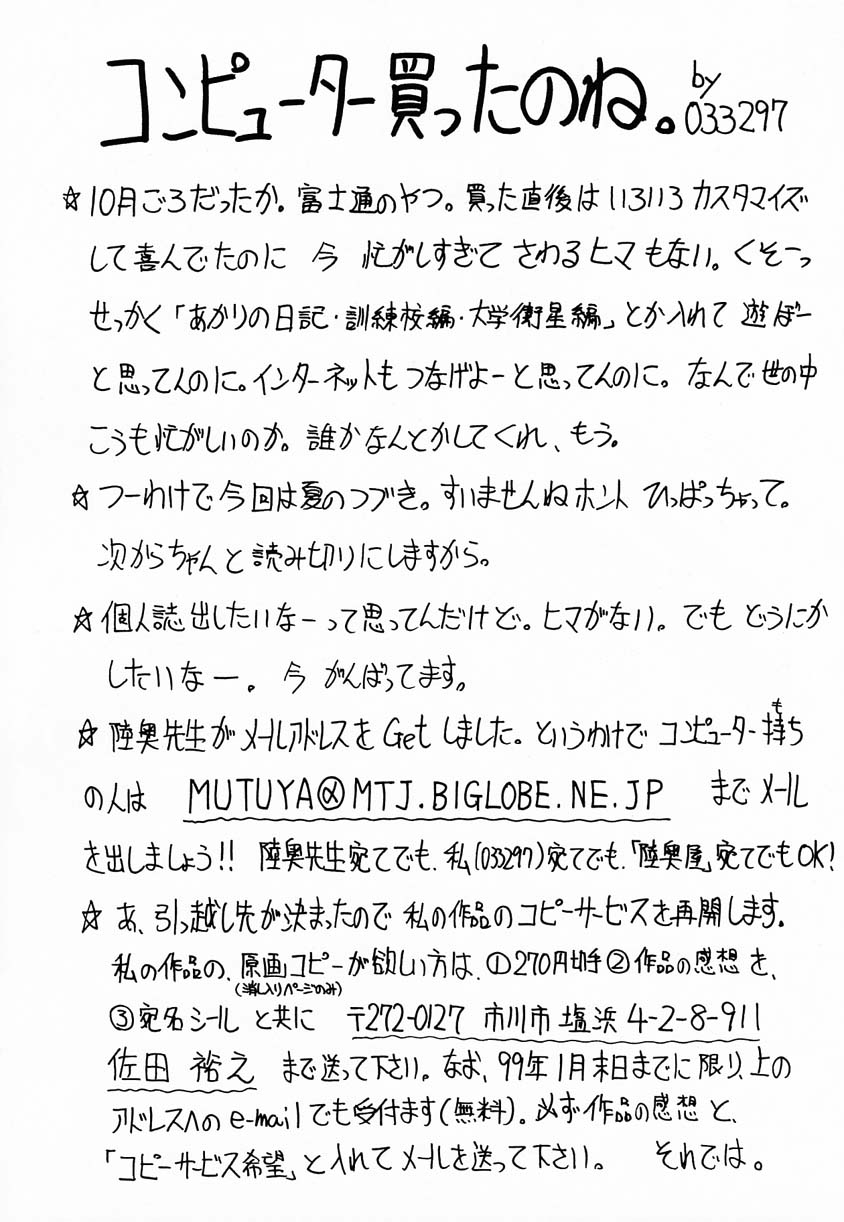 コンピューター買ったのね。by 033297
☆10月ごろだったか。富士通のやつ。買った直後はいろいろカスタマイズ
して喜んでたのに 今 忙がしすぎて さわるヒマもない。くそーっ
せっかく「あかりの日記・訓練校編・大学衛星編」とか入れて 遊ぼー
と思ってんのに。インターネットもつなげよーと思ってんのに。なんで世の中
こうも忙がしいのか。誰かなんとかしてくれ、もう。
☆つーわけで今回は夏のつづき。すいませんねホント ひっぱっちゃって。
次からちゃんと読み切りにしますから。
☆個人誌出したいなーって思ってんだけど。ヒマがない。でも どうにか
したいなー。今 がんばってます。
☆陸奥先生がメールアドレスをGetしました。というわけで コンピューター持(も)ち
の人は MUTUYA@MTJ.BIGLOBE.NE.JP までメール
を出しましょう!! 陸奥先生宛てでも、私(03297)宛てでも、「陸奥屋」宛てでもOK!
☆ あ、引っ越し先が決まったので 私の作品のコピーサービスを再開します。
私の作品の、原画コピーが欲しい方は、①270円切手②作品の感想を、
(消し入りページのみ)
③宛名シール と共に 〒272-0127 市川市塩浜4-2-8-911
佐田 裕え まで送って下さい。なお、99年1月末日までに限り、上の
アドレスへのe-mailでも受付ます(無料)。必ず作品の感想と、
「コピーサービス希望」と入れてメールを送って下さい。 それでは。